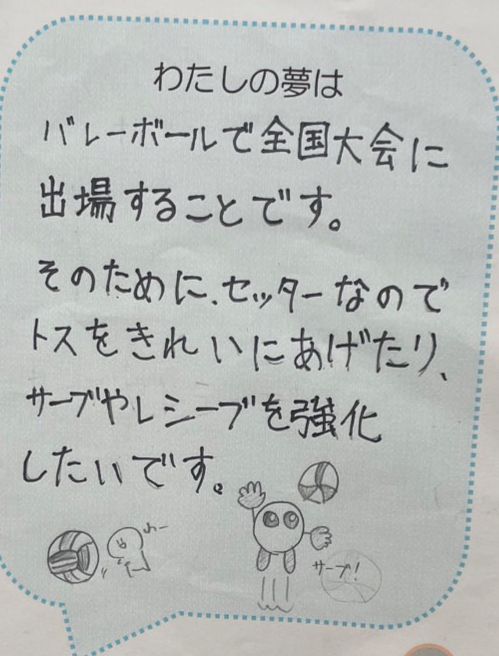 わたしの夢は
バレーボールで全国大会に
出場することです。
そのために、セッターなので
トスをきれいにあげたり、
サーブやレシーブを強化
したいです。
わー
サーブ!